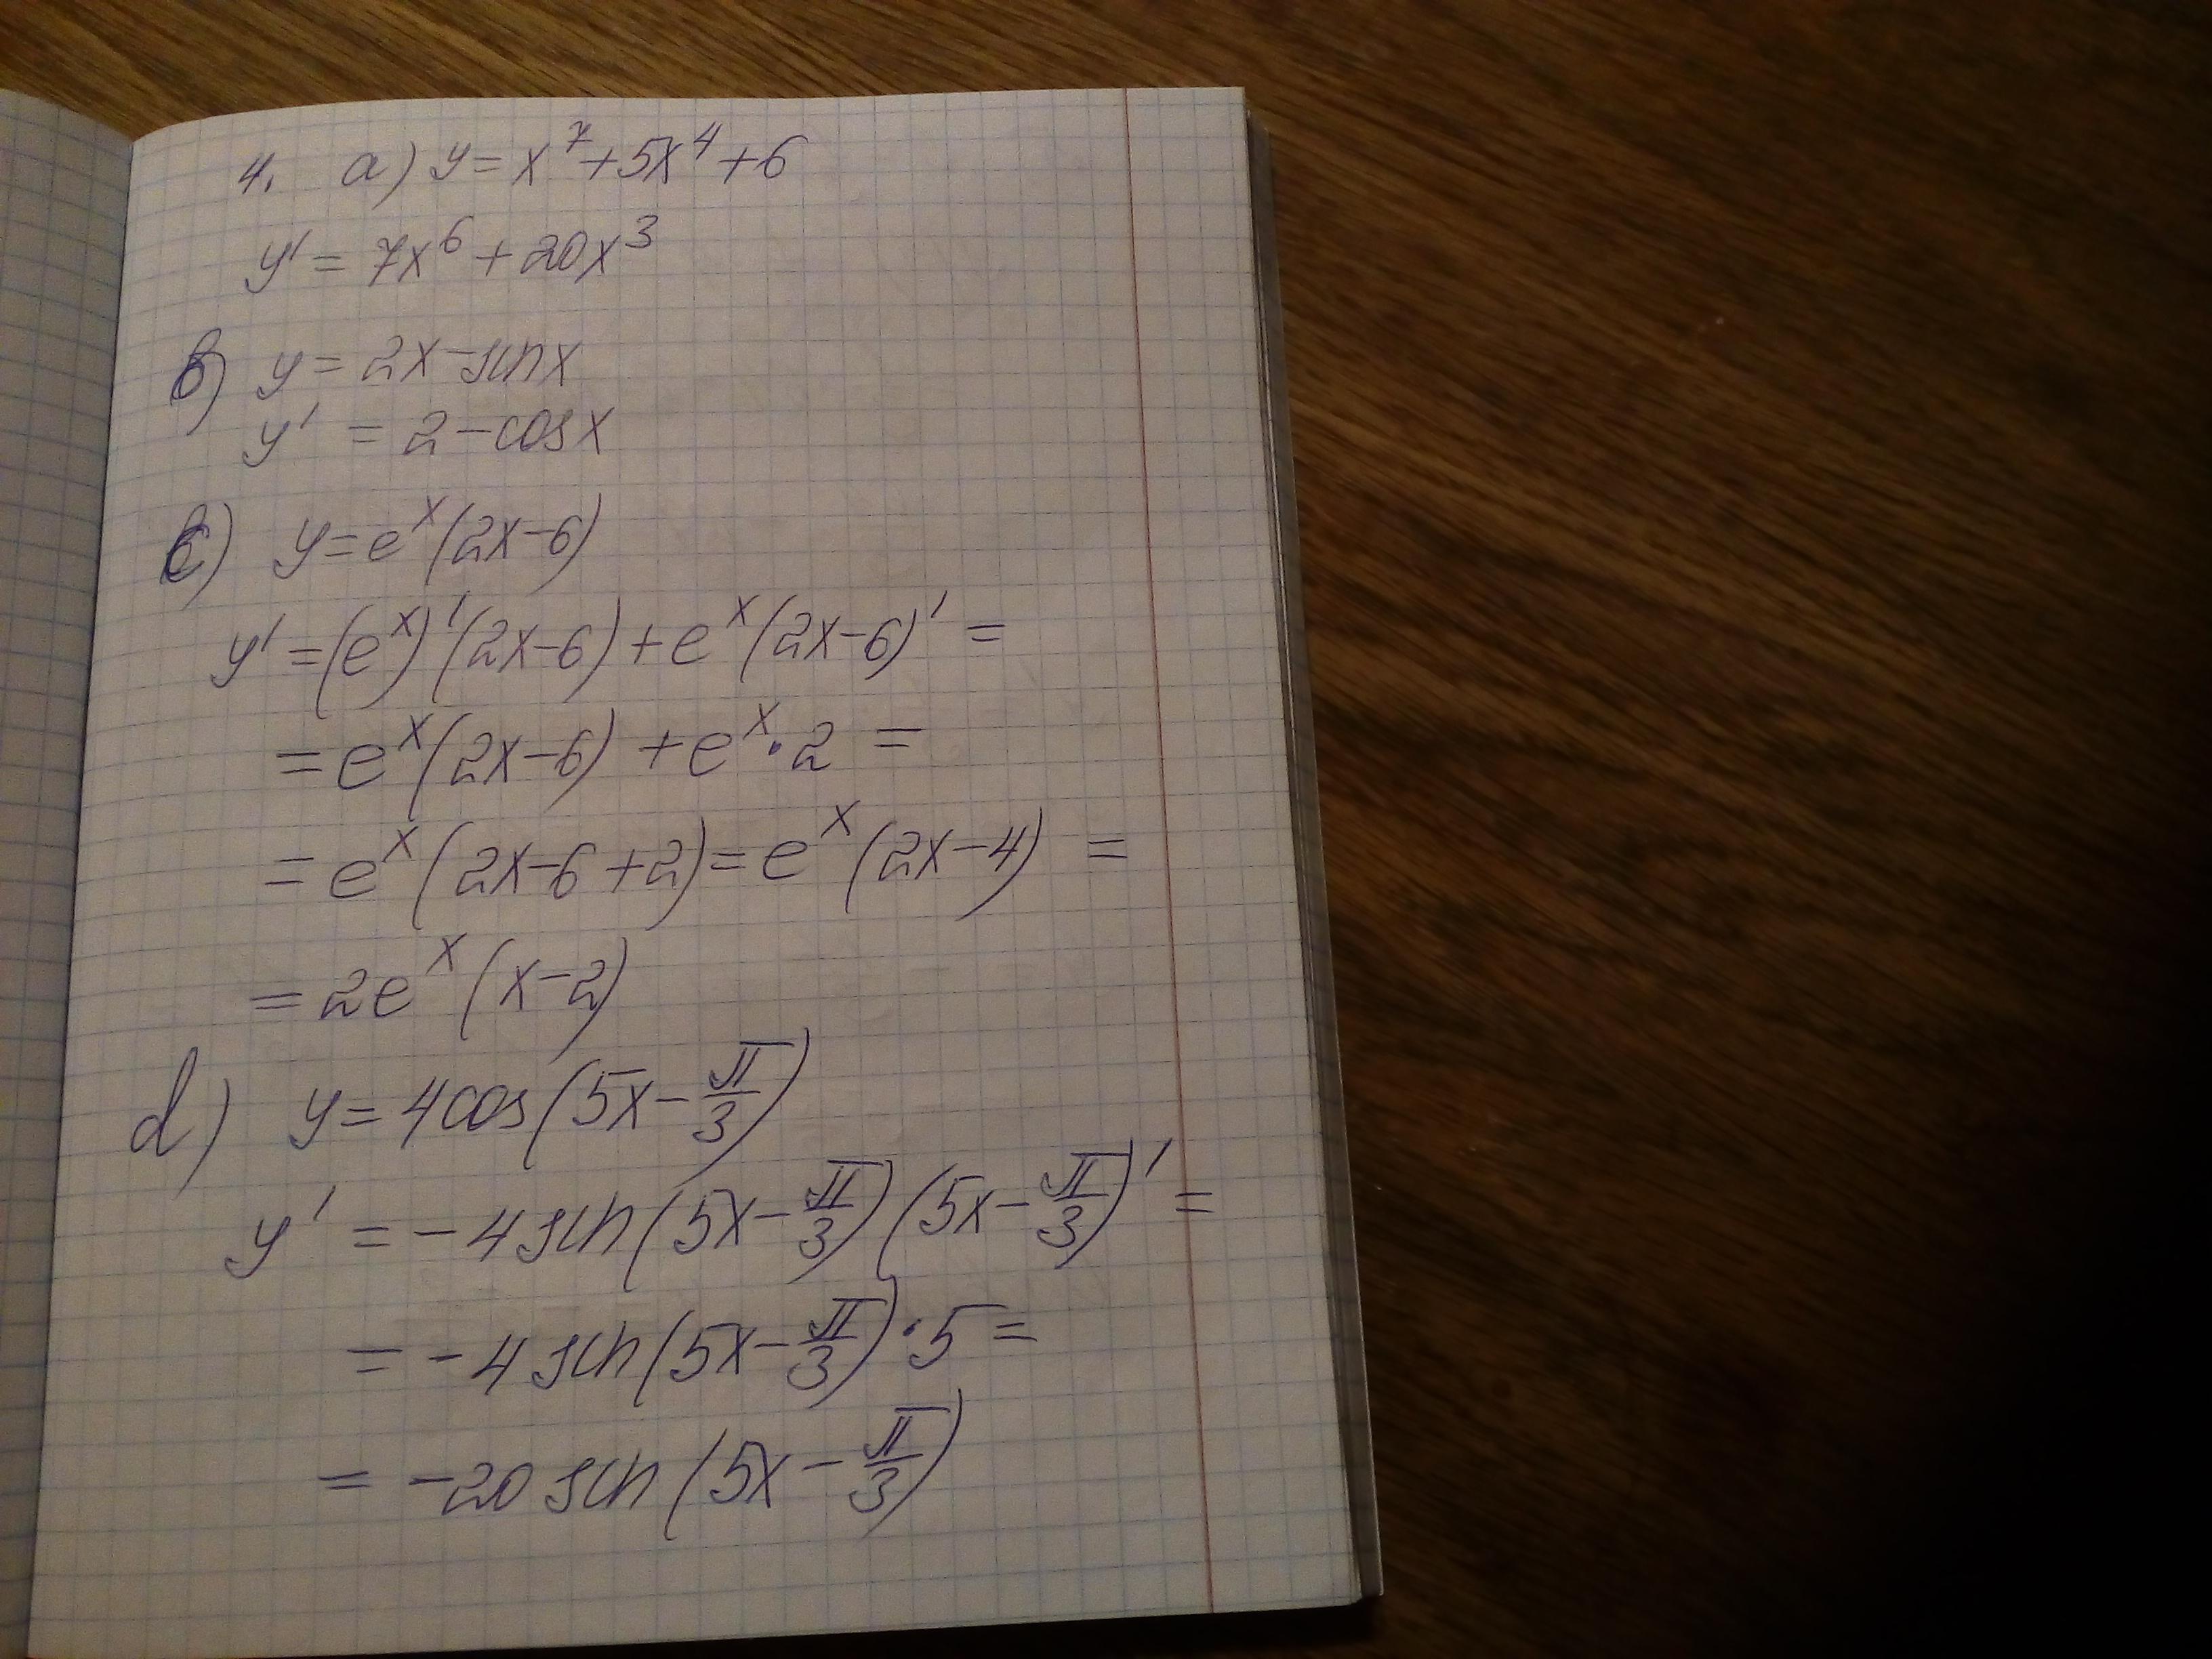 4. a) y = x⁷ + 5x⁴ + 6
y' = 7x⁶ + 20x³
b) y = 2x - sin x
y' = 2 - cos x
c) y = eˣ(2x - 6)
y' = (eˣ)'(2x - 6) + eˣ(2x - 6)' =
= eˣ(2x - 6) + eˣ · 2 =
= eˣ(2x - 6 + 2) = eˣ(2x - 4) =
= 2eˣ(x - 2)
d) y = 4cos(5x - π/3)
y' = -4 sin(5x - π/3)(5x - π/3)' =
= -4 sin(5x - π/3) · 5 =
= -20 sin(5x - π/3)